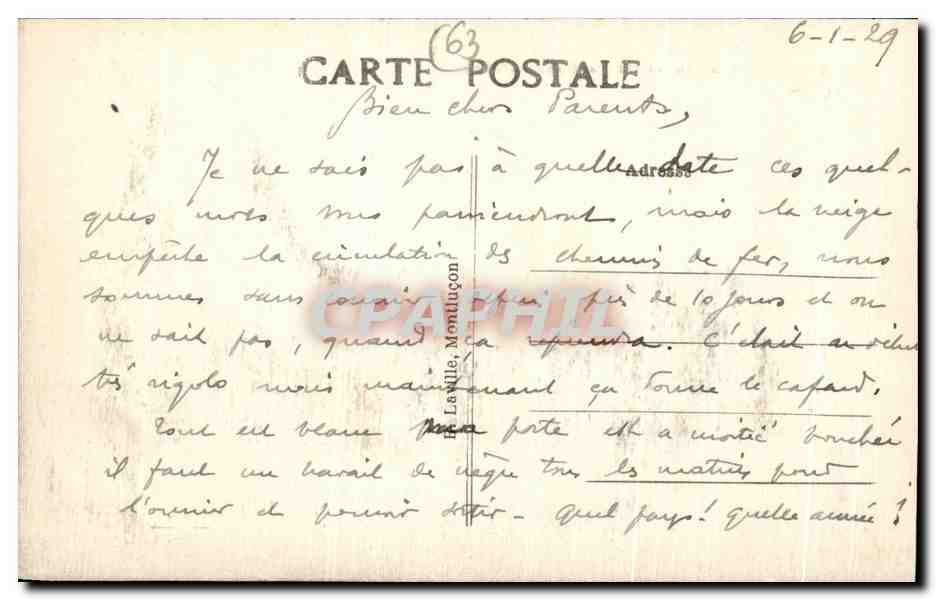 6-1-29
(63
CARTE POSTALE
Bien chers Parents,
Je ne sais pas à quelle date ces quel-
Adresse
ques mots vous parviendront, mais la neige
empêche la circulation des chemins de fer, nous
sommes sans courrier depuis près de 10 jours et on
ne sait pas, quand ça reprendra. C'était au début
très rigolo mais maintenant ça donne le cafard.
Tout est blanc ma porte est à moitié bouchée
il faut un travail de nègre tous les matins pour
l'ouvrir et pouvoir sortir - Quel pays! quelle année!
Laville, Montluçon
CPAPHIL